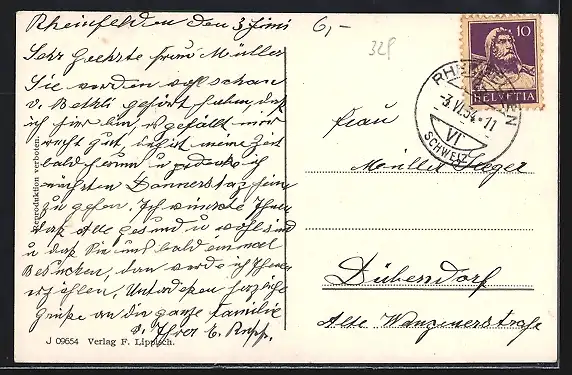 Rheinfelden den 3 Juni
Sehr geehrte Frau Müller
Sie werden wohl schon
v. Bethli gehört haben, daß
ich hier bin, es gefällt mir
recht gut, es ist meine Zeit
bald herum u. gedenke ich
nächsten Donnerstag heim
zu gehen. Ich wünschte Ihnen
daß Alle gesund u wohl sind
u daß Sie uns bald einmal
Besuchen, dann werde ich Ihnen
erzählen. Unterdeßen herzliche
Grüße an die ganze Familie
v. Ihrer E. Rupp.
6,-
32P
10
HELVETIA
RHEINFELDEN
-3.VI.34-11
VI
SCHWEIZ
Frau
Müller
Dübendorf
Alte Wangenerstraße
Reproduktion verboten.
J 09654 Verlag F. Lippisch.